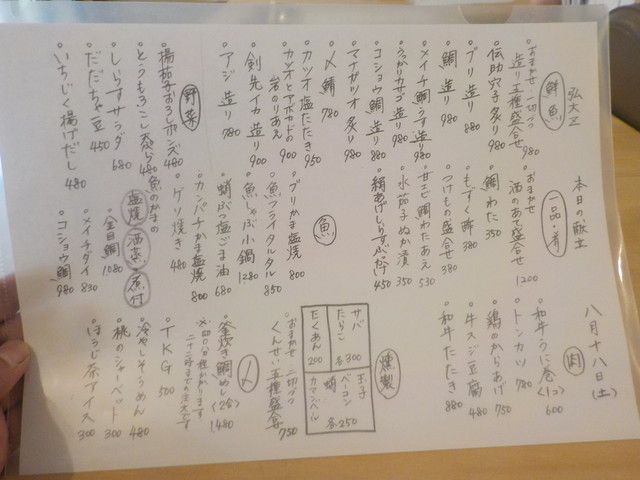 弘大丞
本日の献立
八月十八日(土)
鮮魚
おまかせ 一切づつ
造り五種盛合せ 980
伝助穴子炙り 980
ブリ 造り 880
鯛 造り 980
メイチ鯛うす造り 980
うっかりカサゴ造り 980
コショウ鯛 造り 880
マナガツオ 炙り 980
〆鯖 780
カツオ塩たたき 950
カツオとアボカドの
岩のりあえ 900
剣先イカ造り 900
アジ 造り 780
野菜
揚茄子おろしポン酢 480
とうもろこし天ぷら 480
しらすサラダ 680
だだちゃ豆 450
いちじく揚げだし 480
一品・肴
おまかせ
酒のあて盛合せ 1200
鯛わた 350
もずく酢 380
つけもの盛合せ 380
甘エビ鯛わたあえ 530
水茄子ぬか漬 350
絹あげしらすぶっかけ 450
魚
ブリかま塩焼 800
魚フライタルタル 850
魚しゃぶ小鍋 1280
蛸ぶつ塩ごま油 680
カンパチかま塩焼 800
ゲソ焼き 480
魚のかまの
塩焼 酒蒸 煮付
金目鯛 1080
メイチダイ 880
コショウ鯛 980
肉
和牛うに巻(1コ) 600
トンカツ 780
鶏のからあげ 750
牛スジ豆腐 480
和牛たたき 880
燻製
玉子
ベーコン
蛸 各250
カマンベール
サバ
たらこ 各300
たくあん 200
おまかせ 二切づつ
くんせい五種盛合 750
〆
釜炊き鯛めし(2合) 1480
T K G 500
冷やしそうめん 480
桃のシャーベット 300
ほうじ茶アイス 300